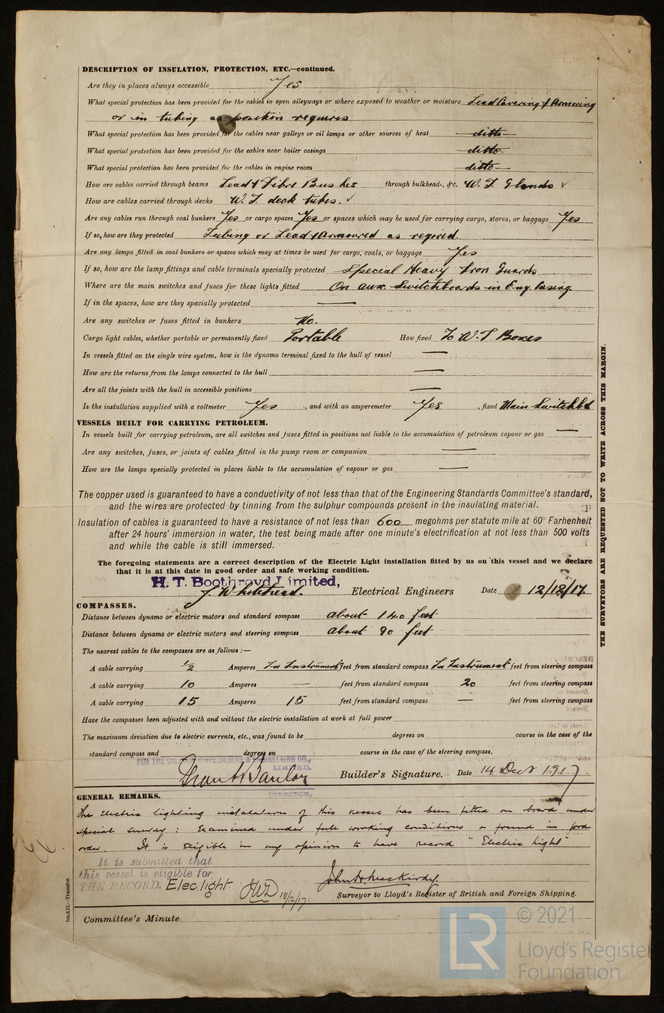 DESCRIPTION OF INSULATION, PROTECTION, ETC.—continued.
Are they in places always accessible Yes
What special protection has been provided for the cables in open alleyways or where exposed to weather or moisture Lead Covering & Armouring
or in tubing as position requires
What special protection has been provided for the cables near galleys or oil lamps or other sources of heat ditto
What special protection has been provided for the cables near boiler casings ditto
What special protection has been provided for the cables in engine room ditto
How are cables carried through beams Lead & Fibre Bushes through bulkheads, &c. W.T. Glands ✓
How are cables carried through decks W.T. deck tubes. ✓
Are any cables run through coal bunkers Yes or cargo spaces Yes or spaces which may be used for carrying cargo, stores, or baggage Yes
If so, how are they protected Tubing or Lead & Armoured as required.
Are any lamps fitted in coal bunkers or spaces which may at times be used for cargo, coals, or baggage Yes
If so, how are the lamp fittings and cable terminals specially protected Special Heavy Iron Guards
Where are the main switches and fuses for these lights fitted On aux. Switchboards in Eng. Casing
If in the spaces, how are they specially protected —
Are any switches or fuses fitted in bunkers No.
Cargo light cables, whether portable or permanently fixed Portable How fixed To W.T. Boxes
In vessels fitted on the single wire system, how is the dynamo terminal fixed to the hull of vessel —
How are the returns from the lamps connected to the hull —
Are all the joints with the hull in accessible positions —
Is the installation supplied with a voltmeter Yes , and with an amperemeter Yes , fixed Main Switchbd
VESSELS BUILT FOR CARRYING PETROLEUM.
In vessels built for carrying petroleum, are all switches and fuses fitted in positions not liable to the accumulation of petroleum vapour or gas —
Are any switches, fuses, or joints of cables fitted in the pump room or companion —
How are the lamps specially protected in places liable to the accumulation of vapour or gas —
The copper used is guaranteed to have a conductivity of not less than that of the Engineering Standards Committee's standard,
and the wires are protected by tinning from the sulphur compounds present in the insulating material.
Insulation of cables is guaranteed to have a resistance of not less than 600 megohms per statute mile at 60° Farhenheit
after 24 hours' immersion in water, the test being made after one minute's electrification at not less than 500 volts
and while the cable is still immersed.
The foregoing statements are a correct description of the Electric Light installation fitted by us on this vessel and we declare
that it is at this date in good order and safe working condition.
H. T. Boothroyd Limited,
J Whitehead. Electrical Engineers Date 12/12/17
COMPASSES.
Distance between dynamo or electric motors and standard compass about 140 feet
Distance between dynamo or electric motors and steering compass about 90 feet
The nearest cables to the compasses are as follows:—
A cable carrying 1/2 Amperes In Instrument feet from standard compass In Instrument feet from steering compass
A cable carrying 10 Amperes — feet from standard compass 20 feet from steering compass
A cable carrying 15 Amperes 15 feet from standard compass — feet from steering compass
Have the compasses been adjusted with and without the electric installation at work at full power
The maximum deviation due to electric currents, etc., was found to be degrees on course in the case of the
standard compass and degrees on course in the case of the steering compass.
LIMITED.
Builder's Signature. Date 14 Dec 1917.
DIRECTOR.
GENERAL REMARKS.
The electric lighting installation of this vessel has been fitted on board under
special survey: Examined under full working conditions & found in good
order. It is eligible in my opinion to have record "Electric light"
It is submitted that
this vessel is eligible for
THE RECORD. Elec. light 18/12/17
Surveyor to Lloyd's Register of British and Foreign Shipping.
Committee's Minute
THE SURVEYORS ARE REQUESTED NOT TO WRITE ACROSS THIS MARGIN.
LR
© 2021
Lloyd's Register
Foundation